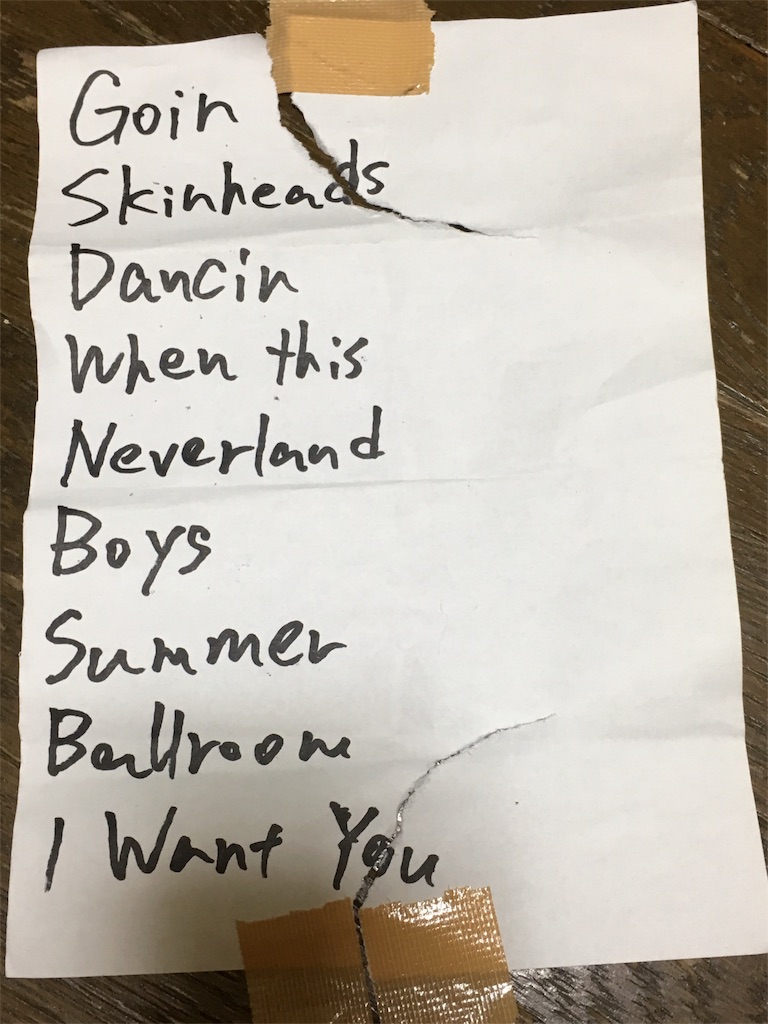 Goin
Skinheads
Dancin
When this
Neverland
Boys
Summer
Ballroom
I Want You